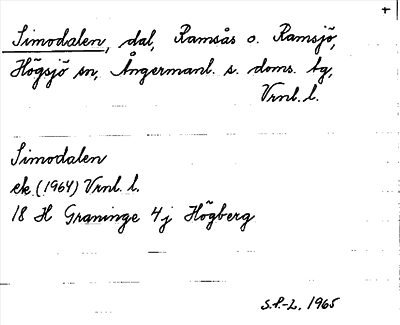 Simodalen, dal, Ramsås o. Ramsjö,
Högsjö sn, Ångermanl. s. doms. tg,
Vrnl. l.
Simodalen
ek (1964) Vrnl. l.
18 H Graninge 4j Högberg
S.P.-L. 1965